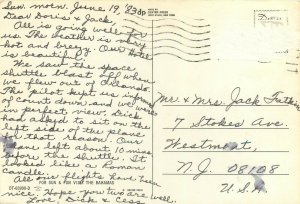 Sun. morn. June 19, '83
Dear Doris & Jack,
All is going well for
us. The weather is very
hot and breezy. Our hotel
is beautiful.
We saw the space
shuttle blast off when
we flew out of Orlando.
The pilot kept us informed
of count down and we were
a perfect view. Dick
had asked to sit on the
left side of the plane
for that reason. Our
plane left about 10 min.
before the shuttle. It
looked like a Roman
candle.
All our flights have been
nice. Hope you two are well.
Love, Dick & Cess
FOR SUN & FUN VISIT THE BAHAMAS
Mr. & Mrs. Jack
7 Stokes Ave.
Westmont,
N.J. 08108
U.S.A.